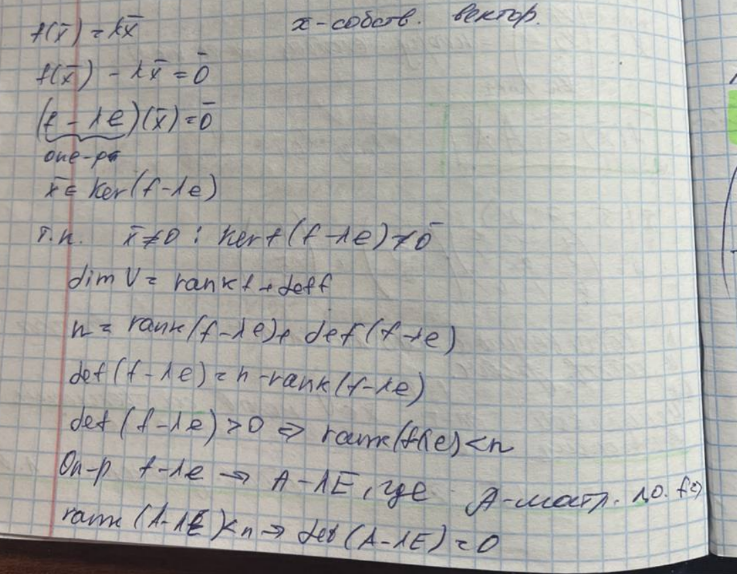 f(x̄) = λx̄ x-собств. вектор.
f(x̄) - λx̄ = 0̄
(f - λe)(x̄) = 0̄
опе-р
x̄ ∈ Ker(f-λe)
т.к. x̄≠0 : Ker f(f-λe) ≠ 0̄
dim V = rank f + def f
n = rank(f-λe) + def(f-λe)
def(f-λe) = n-rank(f-λe)
def(f-λe) > 0 ⇒ rank(f-λe) < n
Оп-р f-λe → A-λE, где A-матр. л.о. f
rank (A-λE) < n → det(A-λE) = 0